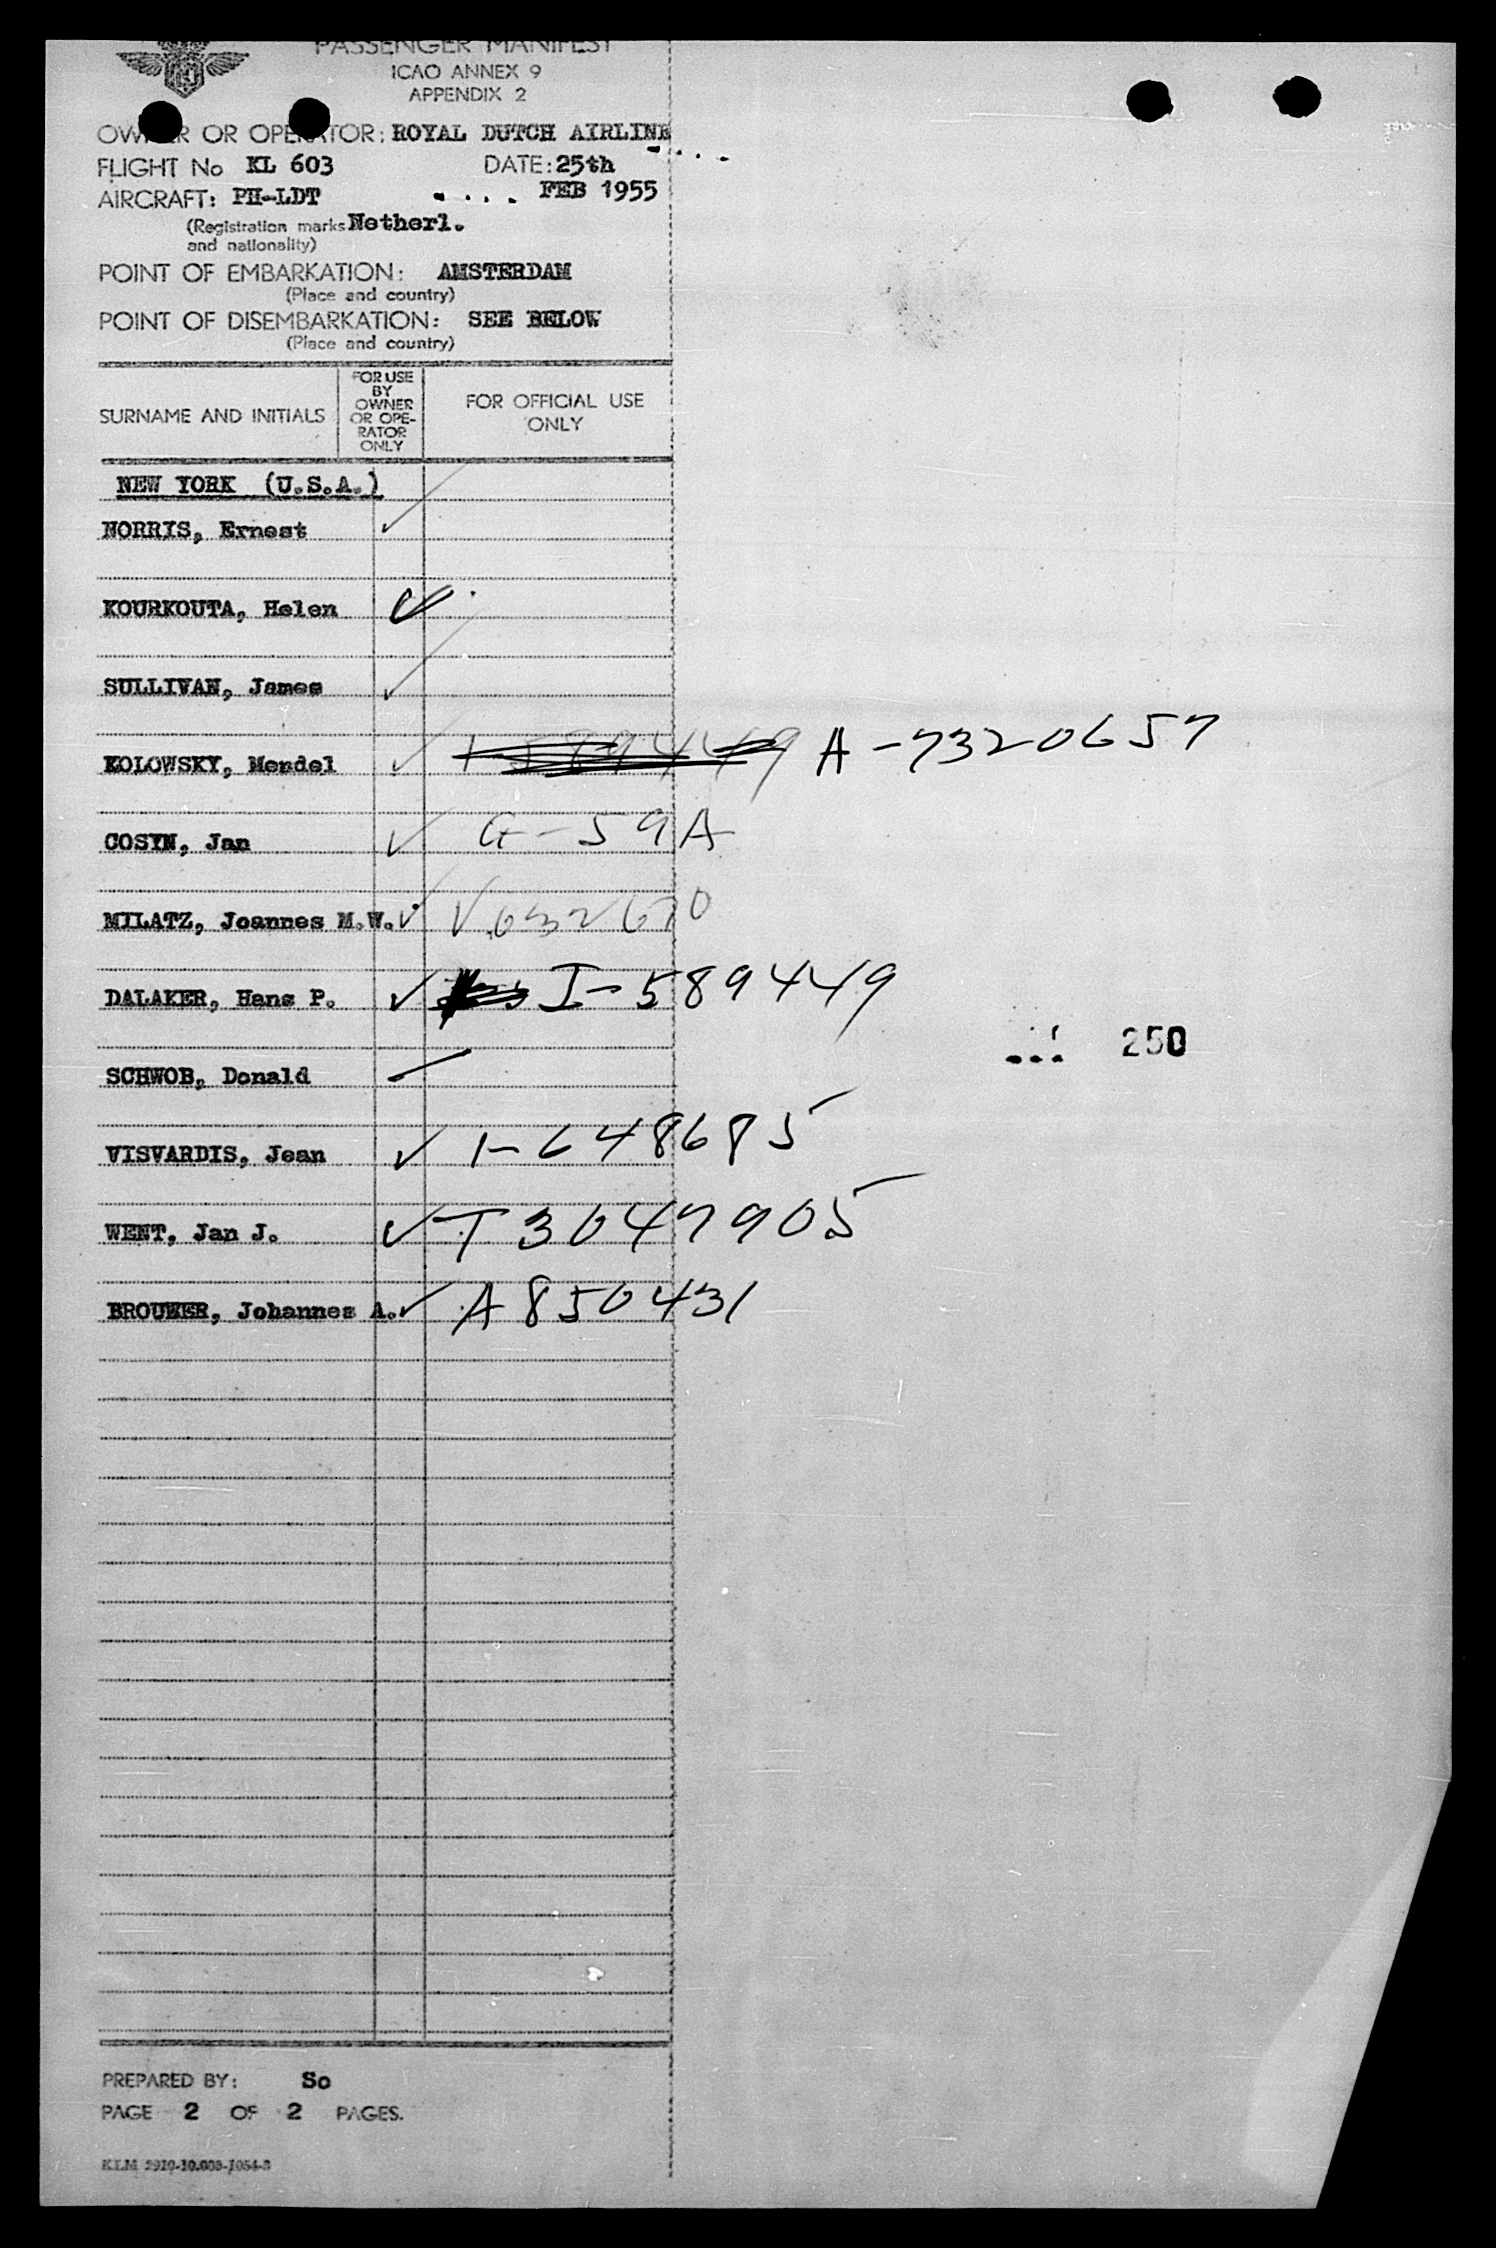 PASSENGER MANIFEST
ICAO ANNEX 9
APPENDIX 2
OWNER OR OPERATOR: ROYAL DUTCH AIRLINE
FLIGHT No KL 603 DATE: 25th
AIRCRAFT: PH-LDT .... FEB 1955
(Registration marks Netherl.
and nationality)
POINT OF EMBARKATION: AMSTERDAM
(Place and country)
POINT OF DISEMBARKATION: SEE BELOW
(Place and country)
SURNAME AND INITIALS
FOR USE
BY
OWNER
OR OPE-
RATOR
ONLY
FOR OFFICIAL USE
ONLY
NEW YORK (U.S.A.)
NORRIS, Ernest
KOURKOUTA, Helen
SULLIVAN, James
KOLOWSKY, Mendel A-7320657
COSYN, Jan G-59A
MILATZ, Joannes M.W. V632670
DALAKER, Hans P. I-589449
250
SCHWOB, Donald
VISVARDIS, Jean I-648685
WENT, Jan J. T3047905
BROUWER, Johannes A. A850431
PREPARED BY: So
PAGE 2 OF 2 PAGES.